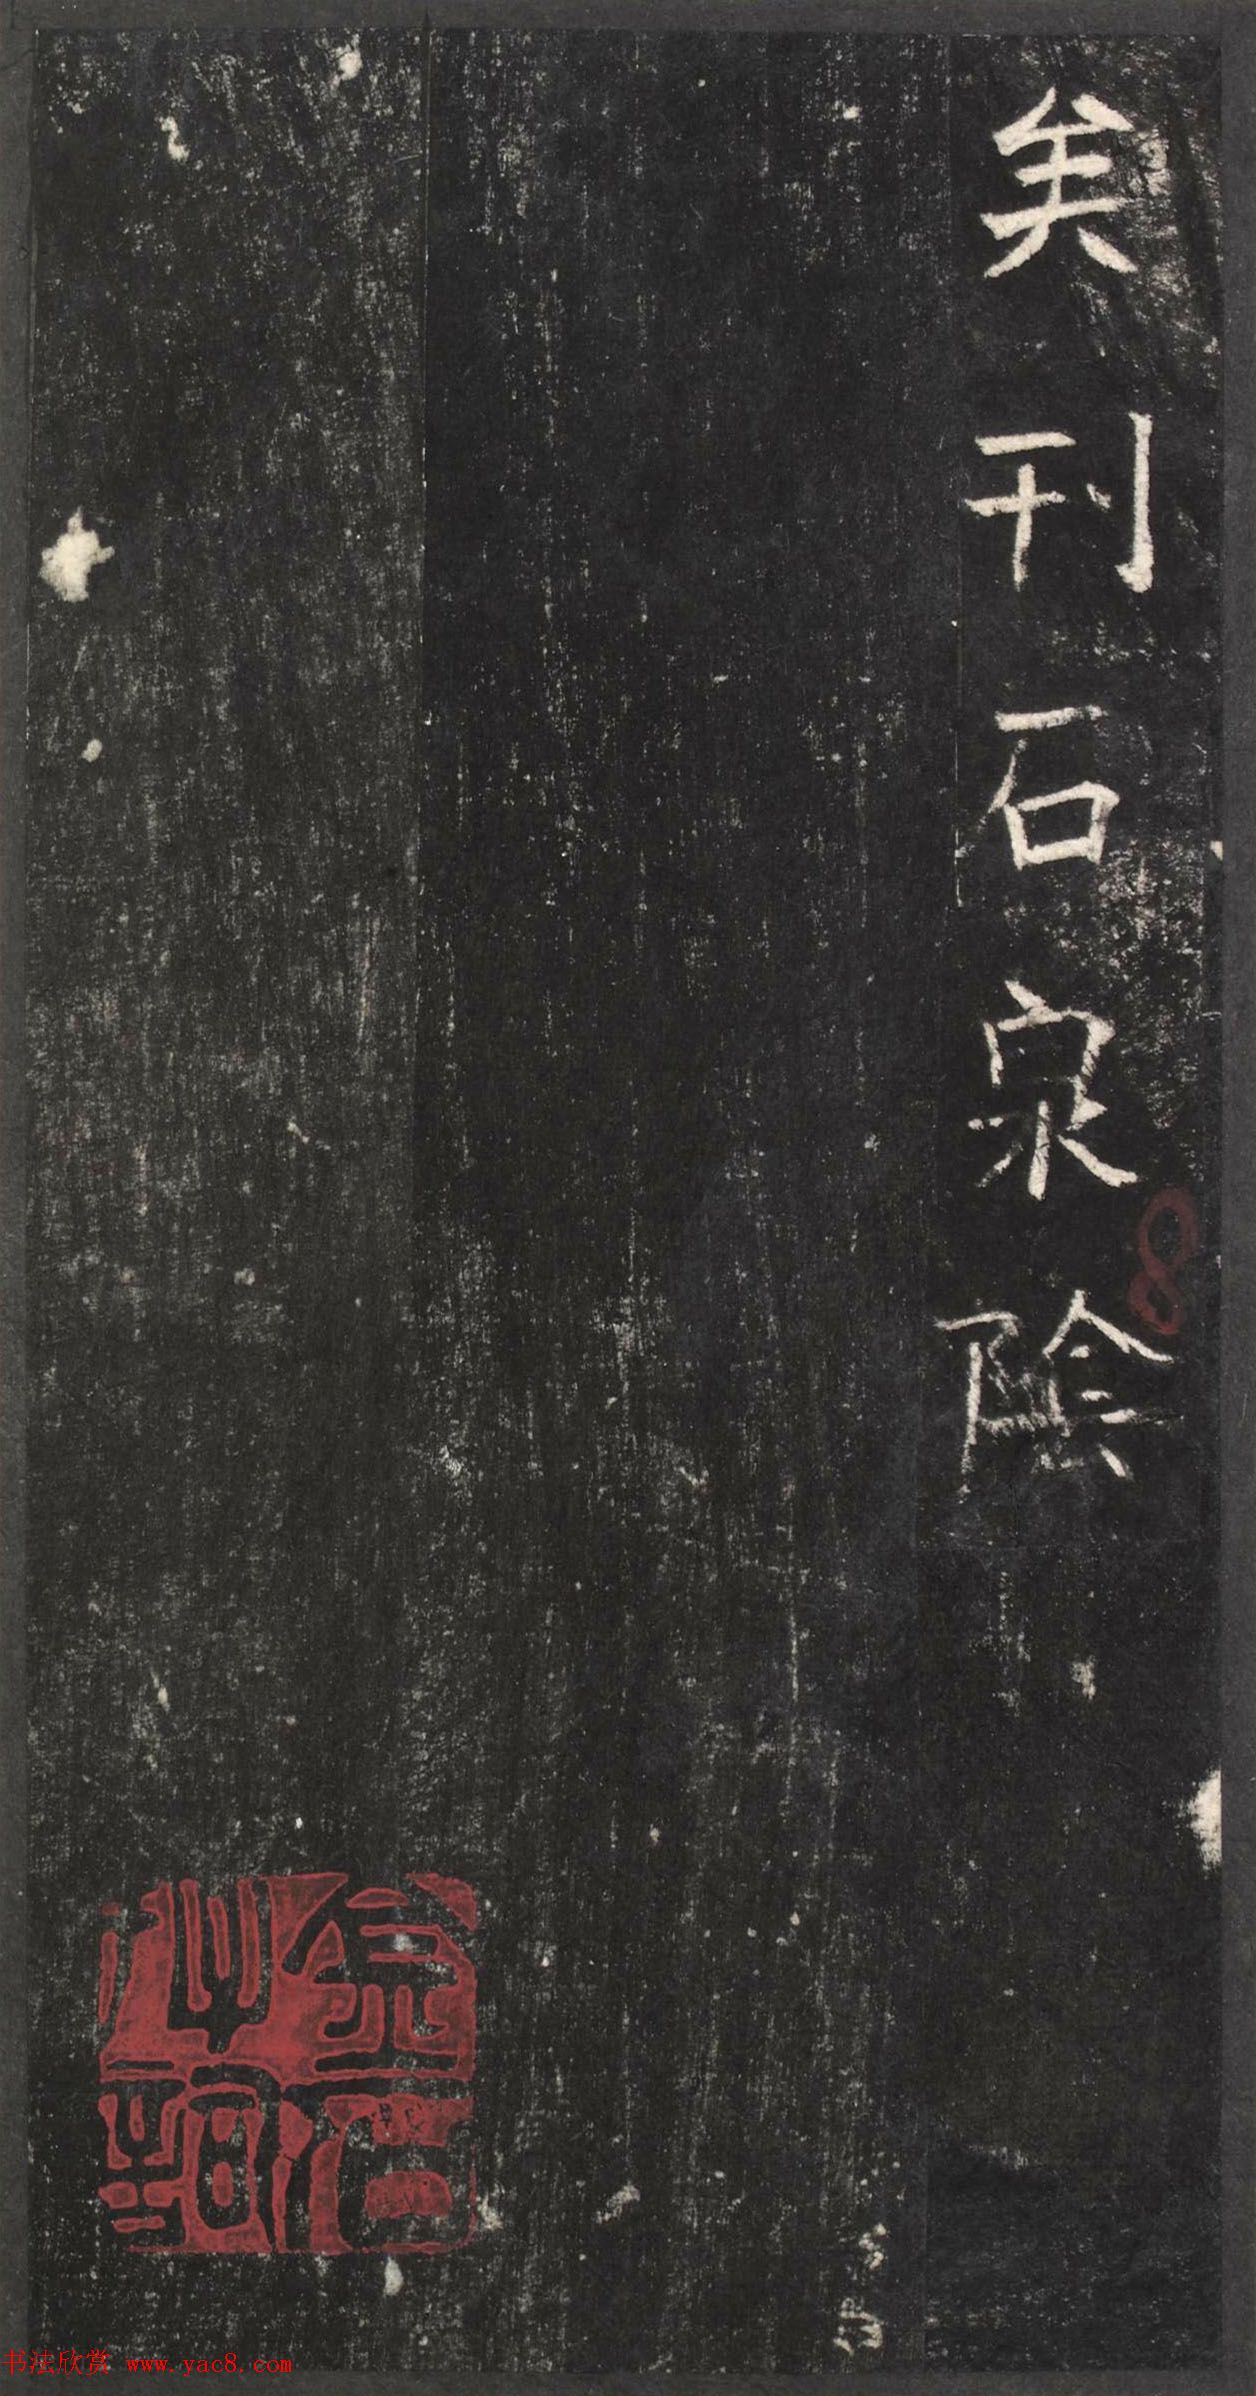 矣刊石泉陰
书法欣赏 www.yac8.com